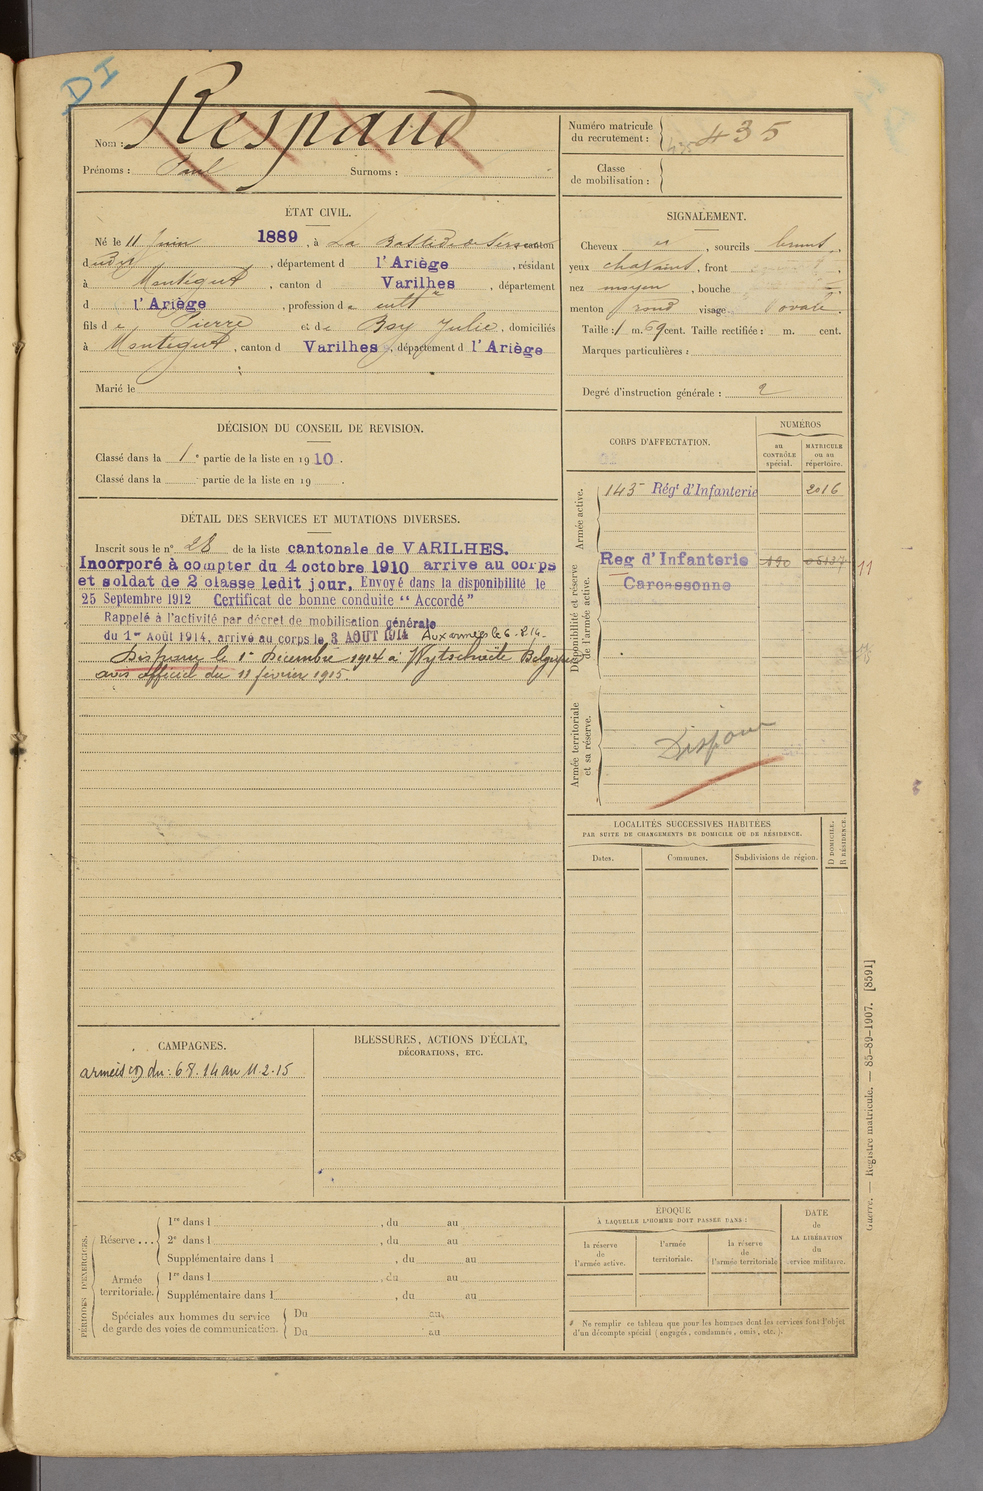 DI
Nom : Respaud
Prénoms : Paul Surnoms :
Numéro matricule du recrutement : 435
Classe de mobilisation :
ÉTAT CIVIL.
Né le 11 Juin 1889, à La Bastide de Sérou canton
dudit, département d l'Ariège, résidant
à Montégut, canton d Varilhes, département
d l'Ariège, profession de cultr
fils de Pierre et de Boy Julie, domiciliés
à Montégut, canton d Varilhes, département d l'Ariège
Marié le
SIGNALEMENT.
Cheveux et, sourcils bruns,
yeux chatains, front
nez moyen, bouche
menton rond visage ovale.
Taille : 1 m. 69 cent. Taille rectifiée : m. cent.
Marques particulières :
Degré d'instruction générale : 2
DÉCISION DU CONSEIL DE REVISION.
Classé dans la 1e partie de la liste en 1910.
Classé dans la partie de la liste en 19 .
DÉTAIL DES SERVICES ET MUTATIONS DIVERSES.
Inscrit sous le n° 28 de la liste cantonale de VARILHES.
Incorporé à compter du 4 octobre 1910 arrive au corps
et soldat de 2 classe ledit jour, Envoyé dans la disponibilité le
25 Septembre 1912 Certificat de bonne conduite “ Accordé ”
Rappelé à l'activité par décret de mobilisation générale
du 1er Août 1914, arrivé au corps le 3 AOUT 1914 Aux armées le 6-8.14.
Disparu le 1er Décembre 1914 à Wytschaete Belgique
avis officiel du 11 février 1915.
CORPS D'AFFECTATION.
NUMÉROS
au CONTRÔLE spécial.
MATRICULE ou au répertoire.
Armée active.
143e Régt d'Infanterie 2016
Disponibilité et réserve de l'armée active.
Reg d'Infanterie
Carcassonne
11
Armée territoriale et sa réserve.
Disparu
LOCALITÉS SUCCESSIVES HABITÉES
PAR SUITE DE CHANGEMENTS DE DOMICILE OU DE RÉSIDENCE.
Dates. Communes. Subdivisions de région.
D DOMICILE.
R RÉSIDENCE.
CAMPAGNES.
du : 6 8. 14 au 11. 2. 15
BLESSURES, ACTIONS D'ÉCLAT,
DÉCORATIONS, ETC.
PÉRIODES D'EXERCICES.
Réserve ...
1re dans l , du au
2e dans l , du au
Supplémentaire dans l , du au
Armée territoriale.
1re dans l , du au
Supplémentaire dans l , du au
Spéciales aux hommes du service
de garde des voies de communication.
Du au
Du au
ÉPOQUE
À LAQUELLE L'HOMME DOIT PASSER DANS :
la réserve de l'armée active.
l'armée territoriale.
la réserve de l'armée territoriale
DATE de LA LIBÉRATION du service militaire.
Ne remplir ce tableau que pour les hommes dont les services font l'objet
d'un décompte spécial (engagés, condamnés, omis, etc.).
Guerre. — Registre matricule. — 85-89-1907. [8591]